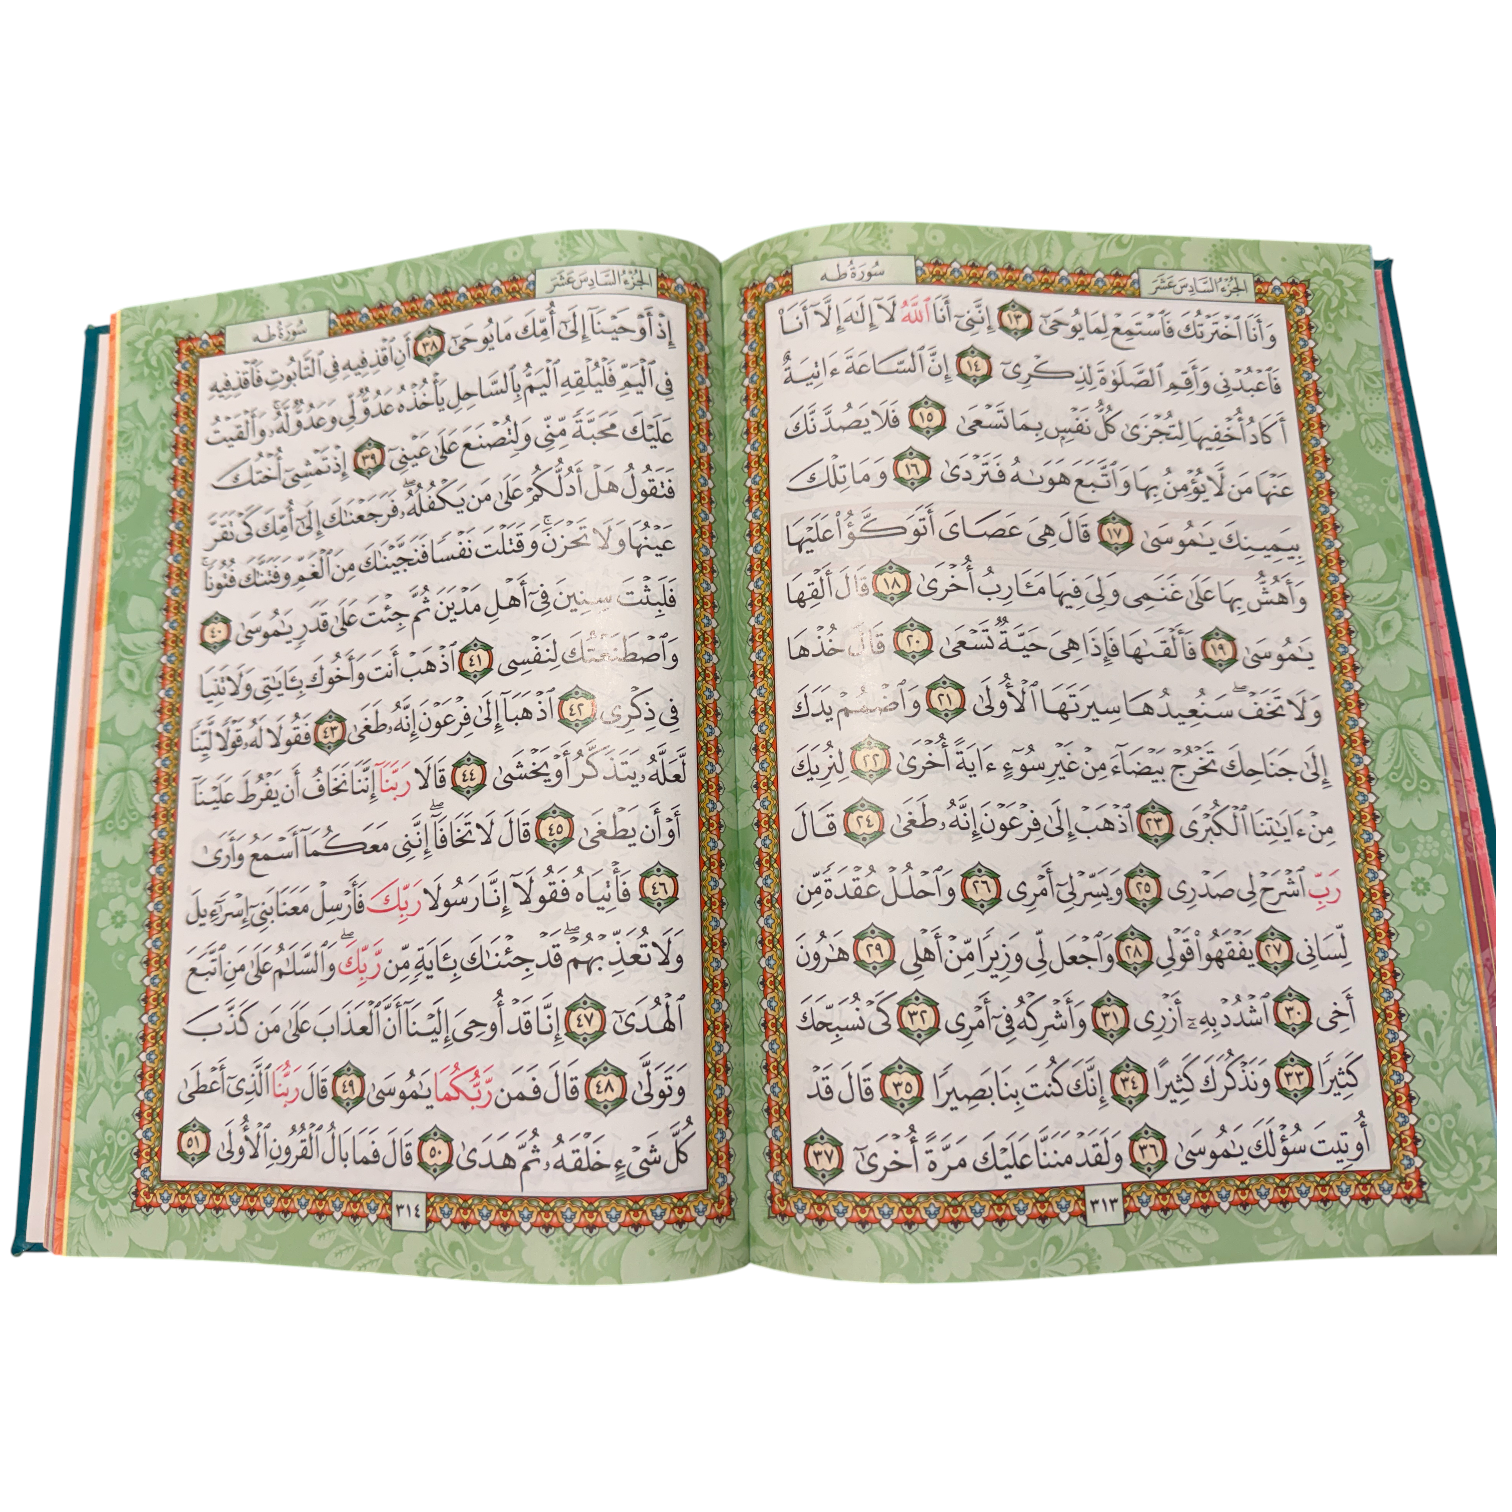 الجُزْءُ السَّادِسَ عَشَرَ
سُورَةُ طه
وَأَنَا ٱخْتَرْتُكَ فَٱسْتَمِعْ لِمَا يُوحَىٰٓ ١٣ إِنَّنِىٓ أَنَا ٱللَّهُ لَآ إِلَٰهَ إِلَّآ أَنَا۠
فَٱعْبُدْنِى وَأَقِمِ ٱلصَّلَوٰةَ لِذِكْرِىٓ ١٤ إِنَّ ٱلسَّاعَةَ ءَاتِيَةٌ
أَكَادُ أُخْفِيهَا لِتُجْزَىٰ كُلُّ نَفْسٍۭ بِمَا تَسْعَىٰ ١٥ فَلَا يَصُدَّنَّكَ
عَنْهَا مَن لَّا يُؤْمِنُ بِهَا وَٱتَّبَعَ هَوَىٰهُ فَتَرْدَىٰ ١٦ وَمَا تِلْكَ
بِيَمِينِكَ يَٰمُوسَىٰ ١٧ قَالَ هِىَ عَصَاىَ أَتَوَكَّؤُا۟ عَلَيْهَا
وَأَهُشُّ بِهَا عَلَىٰ غَنَمِى وَلِىَ فِيهَا مَـَٔارِبُ أُخْرَىٰ ١٨ قَالَ أَلْقِهَا
يَٰمُوسَىٰ ١٩ فَأَلْقَىٰهَا فَإِذَا هِىَ حَيَّةٌ تَسْعَىٰ ٢٠ قَالَ خُذْهَا
وَلَا تَخَفْ ۖ سَنُعِيدُهَا سِيرَتَهَا ٱلْأُولَىٰ ٢١ وَٱضْمُمْ يَدَكَ
إِلَىٰ جَنَاحِكَ تَخْرُجْ بَيْضَآءَ مِنْ غَيْرِ سُوٓءٍ ءَايَةً أُخْرَىٰ ٢٢ لِنُرِيَكَ
مِنْ ءَايَٰتِنَا ٱلْكُبْرَى ٢٣ ٱذْهَبْ إِلَىٰ فِرْعَوْنَ إِنَّهُۥ طَغَىٰ ٢٤ قَالَ
رَبِّ ٱشْرَحْ لِى صَدْرِى ٢٥ وَيَسِّرْ لِىٓ أَمْرِى ٢٦ وَٱحْلُلْ عُقْدَةً مِّن
لِّسَانِى ٢٧ يَفْقَهُوا۟ قَوْلِى ٢٨ وَٱجْعَل لِّى وَزِيرًا مِّنْ أَهْلِى ٢٩ هَٰرُونَ
أَخِى ٣٠ ٱشْدُدْ بِهِۦٓ أَزْرِى ٣١ وَأَشْرِكْهُ فِىٓ أَمْرِى ٣٢ كَىْ نُسَبِّحَكَ
كَثِيرًا ٣٣ وَنَذْكُرَكَ كَثِيرًا ٣٤ إِنَّكَ كُنتَ بِنَا بَصِيرًا ٣٥ قَالَ قَدْ
أُوتِيتَ سُؤْلَكَ يَٰمُوسَىٰ ٣٦ وَلَقَدْ مَنَنَّا عَلَيْكَ مَرَّةً أُخْرَىٰٓ ٣٧
٣١٣
الجُزْءُ السَّادِسَ عَشَرَ
سُورَةُ طه
إِذْ أَوْحَيْنَآ إِلَىٰٓ أُمِّكَ مَا يُوحَىٰٓ ٣٨ أَنِ ٱقْذِفِيهِ فِى ٱلتَّابُوتِ فَٱقْذِفِيهِ
فِى ٱلْيَمِّ فَلْيُلْقِهِ ٱلْيَمُّ بِٱلسَّاحِلِ يَأْخُذْهُ عَدُوٌّ لِّى وَعَدُوٌّ لَّهُۥ ۚ وَأَلْقَيْتُ
عَلَيْكَ مَحَبَّةً مِّنِّى وَلِتُصْنَعَ عَلَىٰ عَيْنِىٓ ٣٩ إِذْ تَمْشِىٓ أُخْتُكَ
فَتَقُولُ هَلْ أَدُلُّكُمْ عَلَىٰ مَن يَكْفُلُهُۥ ۖ فَرَجَعْنَٰكَ إِلَىٰٓ أُمِّكَ كَىْ تَقَرَّ
عَيْنُهَا وَلَا تَحْزَنَ ۚ وَقَتَلْتَ نَفْسًا فَنَجَّيْنَٰكَ مِنَ ٱلْغَمِّ وَفَتَنَّٰكَ فُتُونًا ۚ
فَلَبِثْتَ سِنِينَ فِىٓ أَهْلِ مَدْيَنَ ثُمَّ جِئْتَ عَلَىٰ قَدَرٍ يَٰمُوسَىٰ ٤٠
وَٱصْطَنَعْتُكَ لِنَفْسِى ٤١ ٱذْهَبْ أَنتَ وَأَخُوكَ بِـَٔايَٰتِى وَلَا تَنِيَا
فِى ذِكْرِى ٤٢ ٱذْهَبَآ إِلَىٰ فِرْعَوْنَ إِنَّهُۥ طَغَىٰ ٤٣ فَقُولَا لَهُۥ قَوْلًا لَّيِّنًا
لَّعَلَّهُۥ يَتَذَكَّرُ أَوْ يَخْشَىٰ ٤٤ قَالَا رَبَّنَآ إِنَّنَا نَخَافُ أَن يَفْرُطَ عَلَيْنَآ
أَوْ أَن يَطْغَىٰ ٤٥ قَالَ لَا تَخَافَآ ۖ إِنَّنِى مَعَكُمَآ أَسْمَعُ وَأَرَىٰ
٤٦ فَأْتِيَاهُ فَقُولَآ إِنَّا رَسُولَا رَبِّكَ فَأَرْسِلْ مَعَنَا بَنِىٓ إِسْرَٰٓءِيلَ
وَلَا تُعَذِّبْهُمْ ۖ قَدْ جِئْنَٰكَ بِـَٔايَةٍ مِّن رَّبِّكَ ۖ وَٱلسَّلَٰمُ عَلَىٰ مَنِ ٱتَّبَعَ
ٱلْهُدَىٰٓ ٤٧ إِنَّا قَدْ أُوحِىَ إِلَيْنَآ أَنَّ ٱلْعَذَابَ عَلَىٰ مَن كَذَّبَ
وَتَوَلَّىٰ ٤٨ قَالَ فَمَن رَّبُّكُمَا يَٰمُوسَىٰ ٤٩ قَالَ رَبُّنَا ٱلَّذِىٓ أَعْطَىٰ
كُلَّ شَىْءٍ خَلْقَهُۥ ثُمَّ هَدَىٰ ٥٠ قَالَ فَمَا بَالُ ٱلْقُرُونِ ٱلْأُولَىٰ ٥١
٣١٤